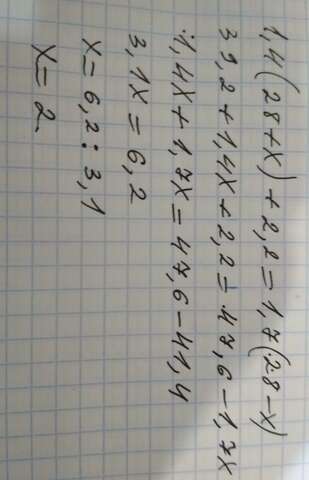 1,4(28+x)+2,2=1,7(28-x)
39,2+1,4x+2,2=47,6-1,7x
1,4x+1,7x=47,6-41,4
3,1x=6,2
x=6,2:3,1
x=2